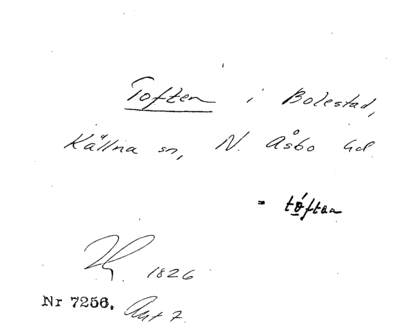 Toften i Bolestad,
Källna sn, N. Åsbo hd.
= tóftan
1826
Nr 7256.